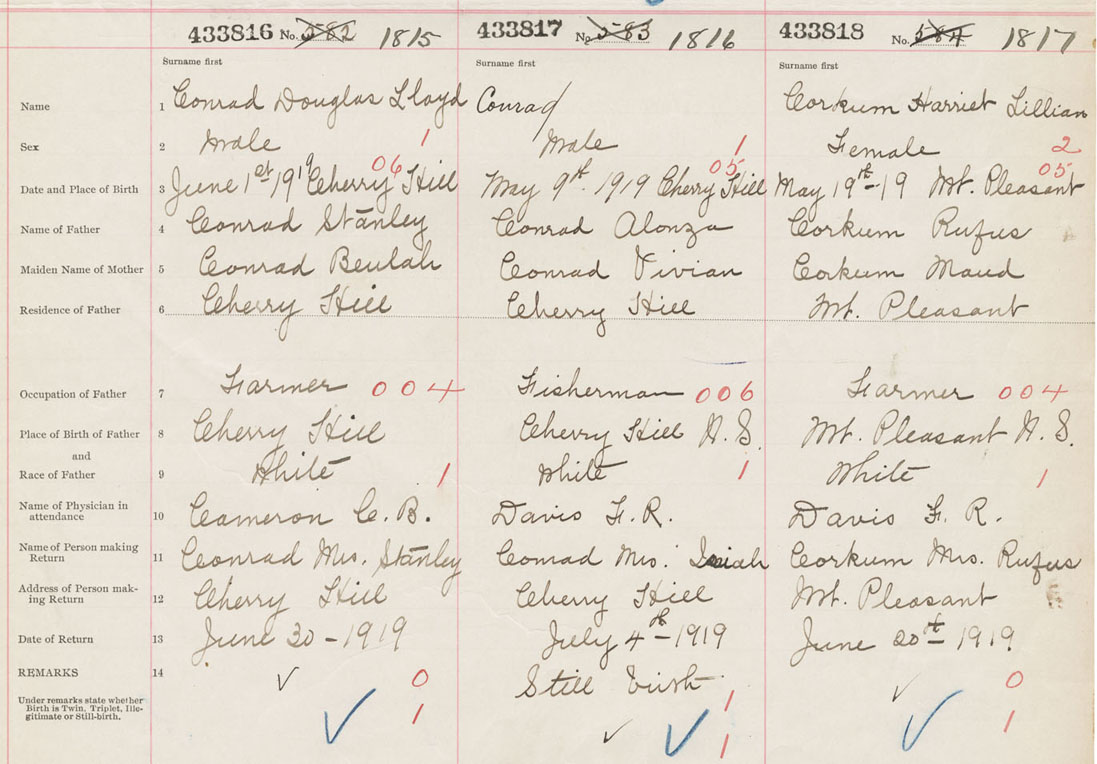 433816 No. 582 1815 433817 No 583 1816 433818 No. 584 1817
Surname first Surname first Surname first
Name 1 Conrad Douglas Lloyd Conrad Corkum Harriet Lillian
Sex 2 Male 1 Male 1 Female 2
06 05 05
Date and Place of Birth 3 June 1st 1919 Cherry Hill May 9th. 1919 Cherry Hill May 19th-19 Mt. Pleasant
Name of Father 4 Conrad Stanley Conrad Alonza Corkum Rufus
Maiden Name of Mother 5 Conrad Beulah Conrad Vivian Corkum Maud
Residence of Father 6 Cherry Hill Cherry Hill Mt. Pleasant
Occupation of Father 7 Farmer 004 Fisherman 006 Farmer 004
Place of Birth of Father 8 Cherry Hill Cherry Hill N.S. Mt. Pleasant N.S.
and
Race of Father 9 White 1 White 1 White 1
Name of Physician in
attendance 10 Cameron C. B. Davis F. R. Davis F. R.
Name of Person making
Return 11 Conrad Mrs. Stanley Conrad Mrs. Isaiah Corkum Mrs. Rufus
Address of Person mak-
ing Return 12 Cherry Hill Cherry Hill Mt. Pleasant
Date of Return 13 June 30 - 1919 July 4th - 1919 June 20th - 1919
REMARKS 14 ✓ 0 Still birth 1 ✓ 0
Under remarks state whether
Birth is Twin, Triplet, Ille-
gitimate or Still-birth. ✓ 1 ✓ ✓ 1 ✓ 1